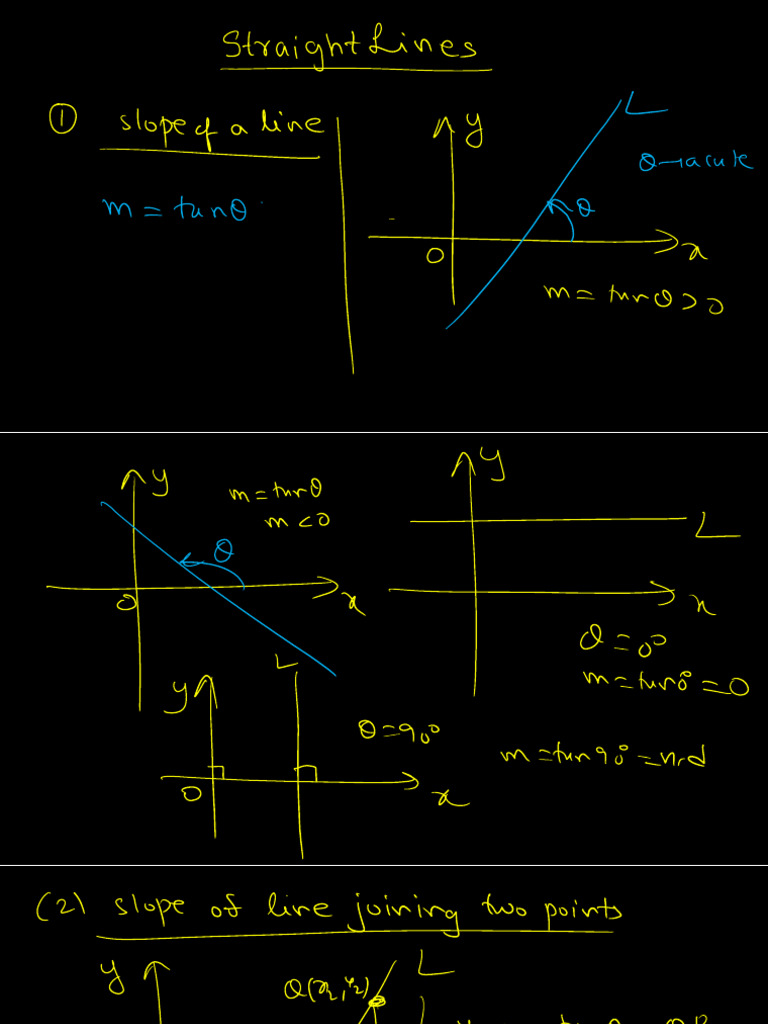 Straight Lines
① slope of a line
m = tanθ
y
L
θ→acute
θ
O
x
m = tanθ > 0
y
m = tanθ
m < 0
θ
O
x
y
L
x
θ = 0°
m = tan0° = 0
y
L
θ = 90°
m = tan90° = n.d
O
x
(2) slope of line joining two points
y
L
Q(x₂, y₂)